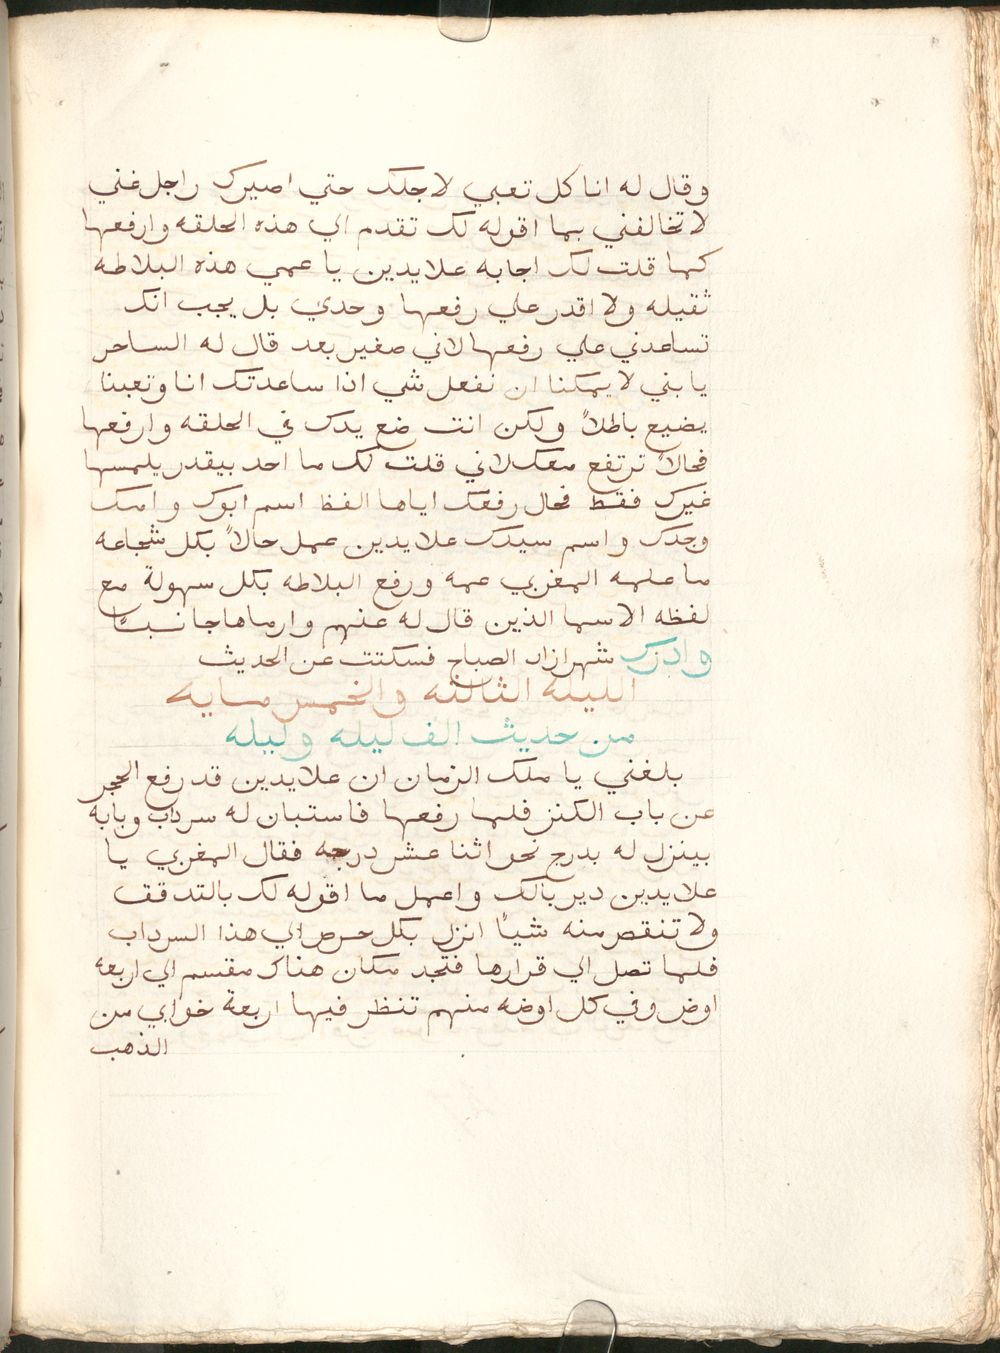 وقال له انا كل تعبي لاجلك حتي اصيرك راجل غني
لا تخالفني بما اقوله لك تقدم الي هذه الحلقه وارفعها
كما قلت لك اجابه علايدين يا عمي هذه البلاطه
ثقيله ولا اقدر علي رفعها وحدي بل يجب انك
تساعدني علي رفعها لاني صغير بعد قال له الساحر
يا بني لا يمكنا ان نفعل شي اذا ساعدتك انا وتعبنا
يضيع باطلاً ولكن انت ضع يدك في الحلقه وارفعها
فحالاً ترتفع معك لاني قلت لك ما احد بيقدر يلمسها
غيرك فقط فحال رفعك اياها الفظ اسم ابوك وامك
وجدك واسم سيدك علايدين عمل حالاً بكل شجاعه
ما علمه المغربي عمه ورفع البلاطه بكل سهولة مع
لفظه الاسما الذين قال له عنهم وارماها جانبًا
وادرك شهرازاد الصباح فسكتت عن الحديث
الليله الثالثه والخمس مايه
من حديث الف ليله وليله
بلغني يا ملك الزمان ان علايدين قد رفع الحجر
عن باب الكنز فلما رفعها فاستبان له سرداب وبابه
بينزل له بدرج نحو اثنا عشر درجه فقال المغربي يا
علايدين دير بالك واعمل ما اقوله لك بالتدقق
ولا تنقص منه شياً انزل بكل حرص الي هذا السرداب
فلما تصل الي قرارها فتجد مكان هناك مقسم الي اربعه
اوض وفي كل اوضه منهم تنظر فيها اربعة خوابي من
الذهب